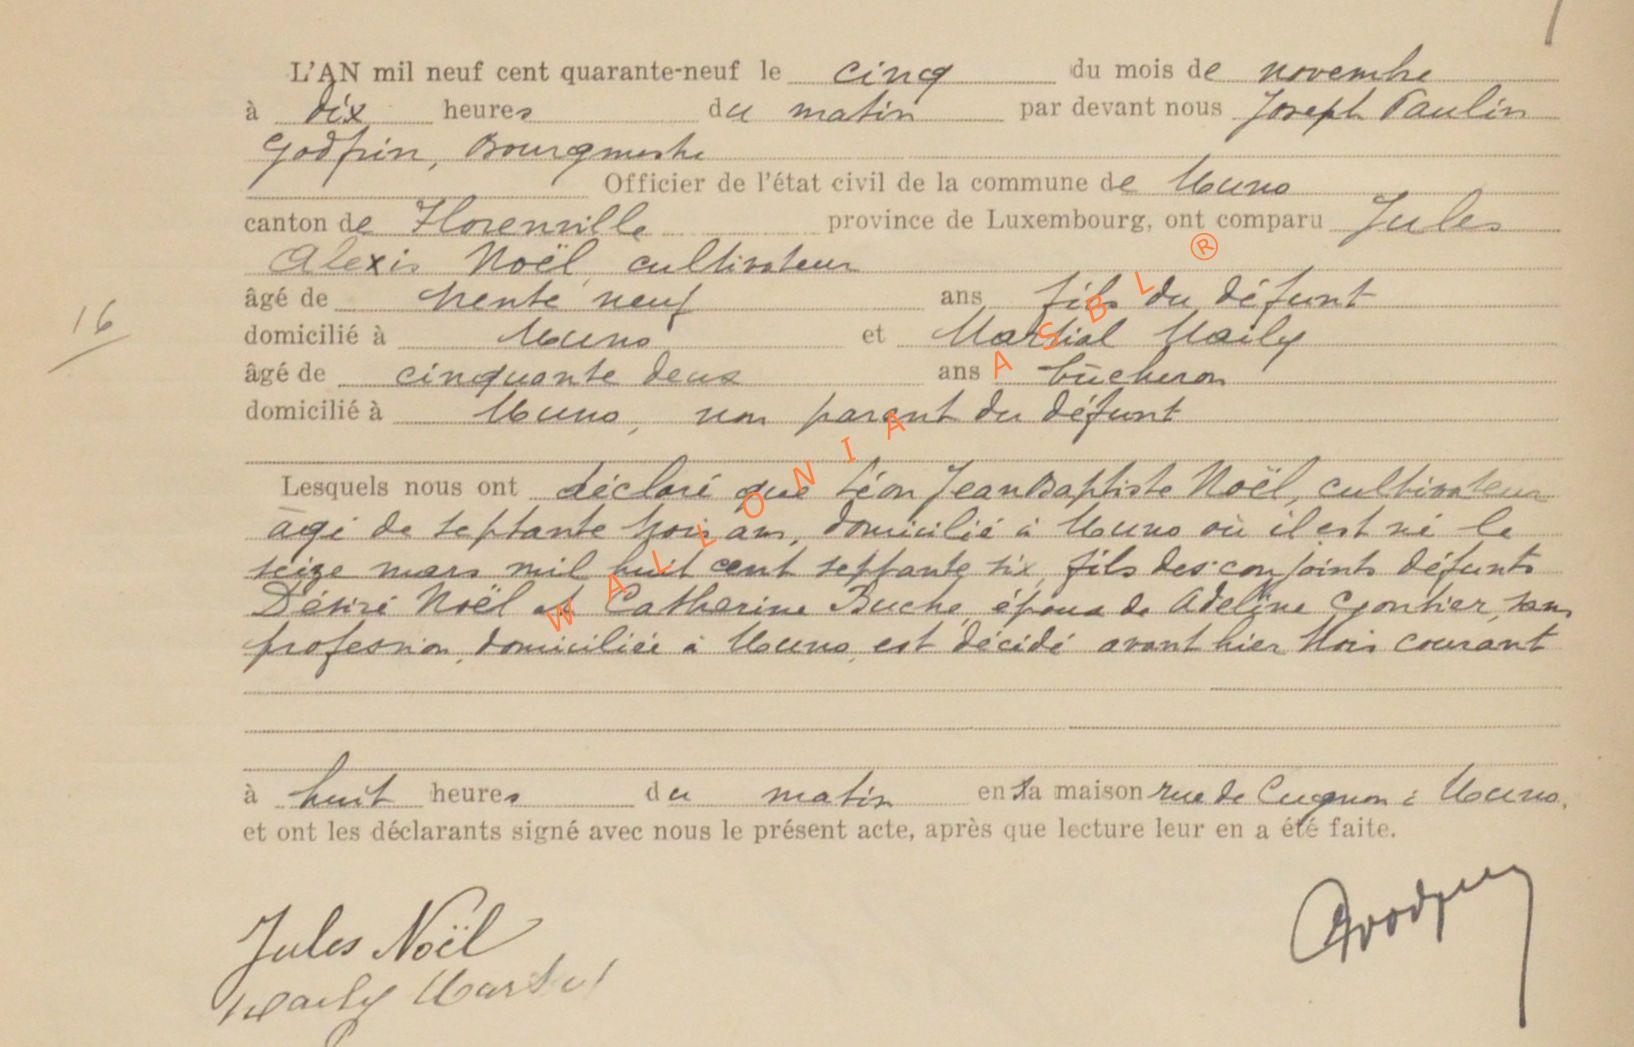 L'AN mil neuf cent quarante-neuf le cinq du mois de novembre
à dix heures du matin par devant nous Joseph Paulin
Godfrin, Bourgmestre
Officier de l'état civil de la commune de Muno
canton de Florenville province de Luxembourg, ont comparu Jules
Alexis Noël, cultivateur
âgé de trente neuf ans fils du défunt
16
domicilié à Muno et Martial Maily
âgé de cinquante deux ans bûcheron
domicilié à Muno, non parent du défunt
Lesquels nous ont déclaré que Léon Jean Baptiste Noël, cultivateur
âgé de septante trois ans, domicilié à Muno où il est né le
seize mars mil huit cent septante six, fils des conjoints défunts
Désiré Noël et Catherine Buche, époux de Adeline Gontier, sans
profession, domiciliée à Muno, est décédé avant hier trois courant
à huit heures du matin en sa maison rue de Cugnon à Muno,
et ont les déclarants signé avec nous le présent acte, après que lecture leur en a été faite.
Jules Noël
Maily Martial
WALLONIA ASBL ®